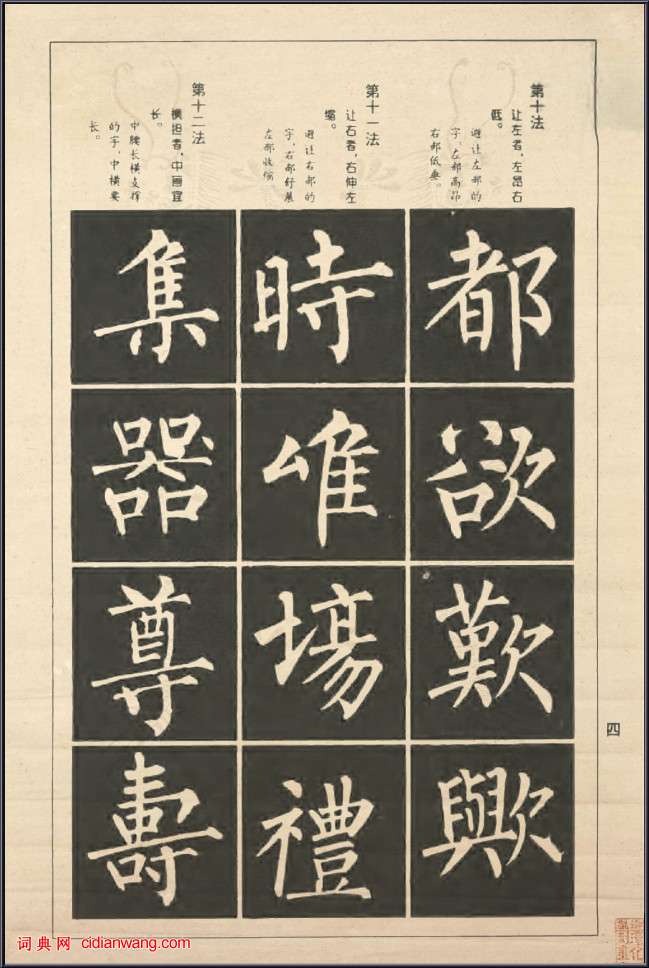 第十法
让左者，左昂右
低。
避让左部的
字，左部高昂
右部低垂。
都
欲
歎
歟
第十一法
让右者，右伸左
缩。
避让右部的
字，右部舒展
左部收缩
時
場
禮
第十二法
横担者，中画宜
长。
中腰长横支撑
的字，中横要
长。
集
器
尊
壽
四
词典网 cidianwang.com